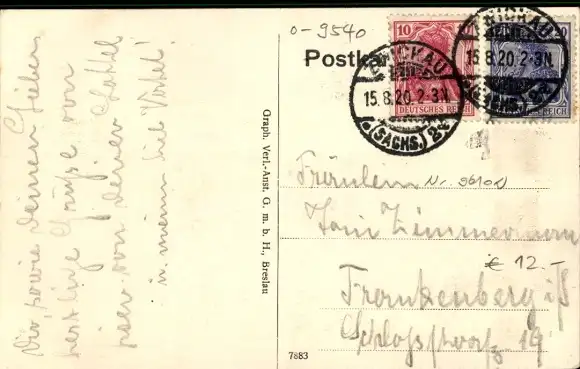 Dir, sowie deinen Lieben
herzliche Grüße von
hier von deiner
u. meinen
Graph. Verl.-Anst. G. m. b. H., Breslau
7883
0-9540
Postkar
10
DEUTSCHES REICH
REICH
ZWICKAU
15.8.20.2-3N.
(SACHS.) 2c
ZWICKAU
15.8.20.2-3N.
(SACHS.)
Fräulein
Nr. 9610N
Zimmermann
€ 12.-
Frankenberg i/S
19